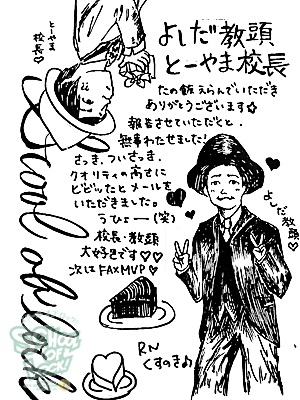 よしだ教頭
とーやま校長
とーやま
校長♡
たの飯えらんでいただき
ありがとうございます☆
報告させていただくと、
無事わたせました!
さっき、ついさっき、
クオリティの高さに
ビビったとメールを
いただきました。
うひょー(笑)
校長・教頭
大好きです♡♡
次はFAXMVP♡
よしだ
教頭♡
School of Lock
RN
くすのきお
SCHOOL
OF LOCK!